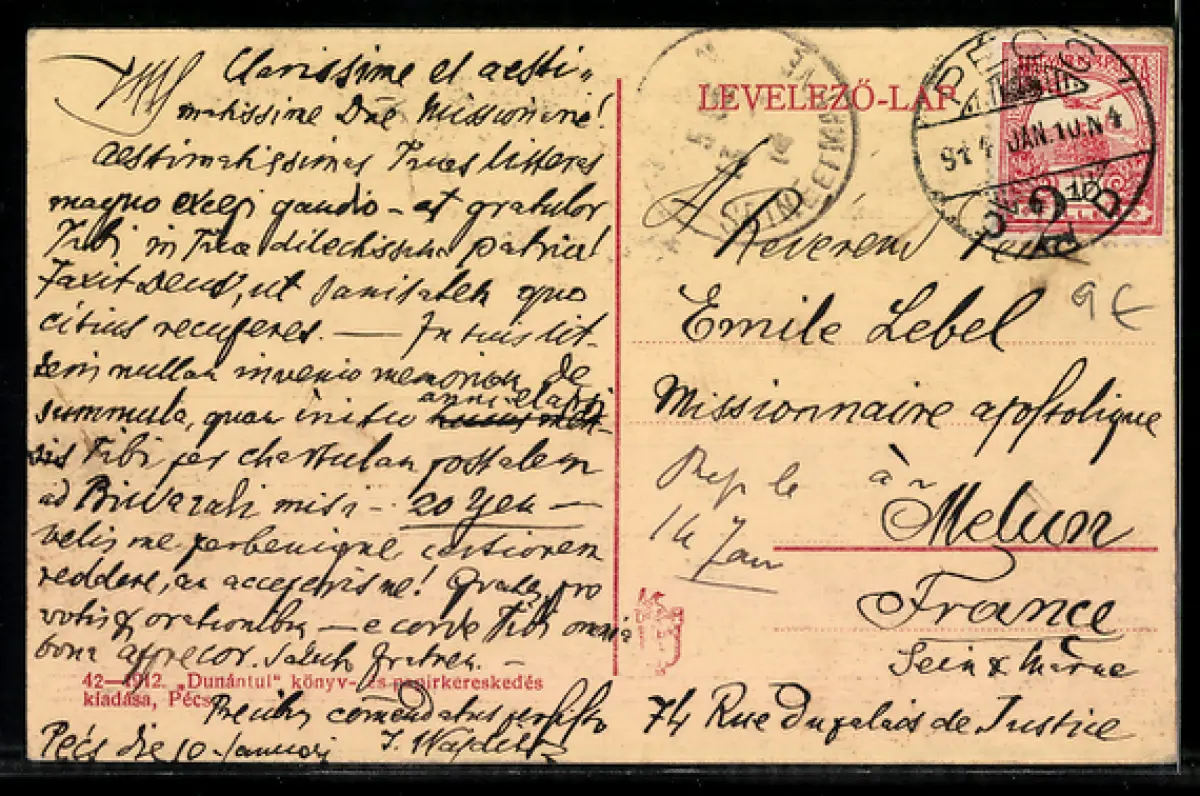 Clarissime et aesti-
matissime Dne Missionarie!
aestimatissimas Tuas litteras
magno excepi gaudio - et gratulor
Tibi in Tua dilectissima patria!
Faxit Deus, ut sanitatem quo
citius recuperes. — In tuis lit-
teris nullam invenio memoriam de
summula, quam initio anni elapsi
Tibi per chartulam postalem
ad misi - 20 Yen -
velis me perbenigne certiorem
reddere, an acceperis ne! Grates pro
votis & orationibus - e corde Tibi omnia
bona apprecor. Saluta fratrem. -
42—1912. „Dunántul" könyv- és papirkereskedés
kiadása, Pécs
Precibus comendatus persisto
Pécs die 10. Januari J.
LEVELEZŐ-LAP
MAGYAR KIR. POSTA
PÉCS
914 JAN. 10. N 4
2
10
SEINE ET MARNE
A
Reverend Père
Emile Lebel
Missionnaire apostolique
à
Melun
France
Sein & Marne
74 Rue du palais de Justice
Rep le
14 Jan
9 €